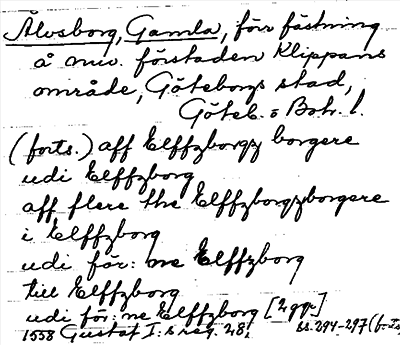 Älvsborg, Gamla, förr fästning
å nuv. förstaden Klippans
område, Göteborgs stad,
Göteb. o Boh. l.
(forts.) aff Elffzborgz borgere
udi Elffzborg
aff flere the Elffzborgzborgere
i Elffzborg
udi för: ne Elffzborg
till Elffzborg
udi för: ne Elffzborg [2 ggr]
1558 Gustaf I:s reg. 28, ss. 294-297 (f. Is